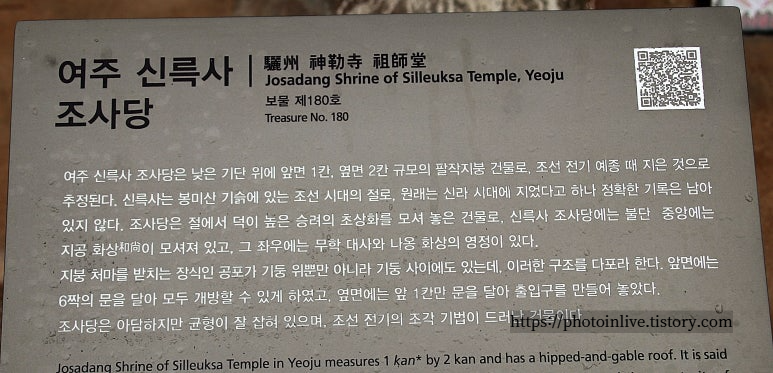 여주 신륵사
조사당
驪州 神勒寺 祖師堂
Josadang Shrine of Silleuksa Temple, Yeoju
보물 제180호
Treasure No. 180
여주 신륵사 조사당은 낮은 기단 위에 앞면 1칸, 옆면 2칸 규모의 팔작지붕 건물로, 조선 전기 예종 때 지은 것으로
추정된다. 신륵사는 봉미산 기슭에 있는 조선 시대의 절로, 원래는 신라 시대에 지었다고 하나 정확한 기록은 남아
있지 않다. 조사당은 절에서 덕이 높은 승려의 초상화를 모셔 놓은 건물로, 신륵사 조사당에는 불단 중앙에는
지공 화상和尚이 모셔져 있고, 그 좌우에는 무학 대사와 나옹 화상의 영정이 있다.
지붕 처마를 받치는 장식인 공포가 기둥 위뿐만 아니라 기둥 사이에도 있는데, 이러한 구조를 다포라 한다. 앞면에는
6짝의 문을 달아 모두 개방할 수 있게 하였고, 옆면에는 앞 1칸만 문을 달아 출입구를 만들어 놓았다.
조사당은 아담하지만 균형이 잘 잡혀 있으며, 조선 전기의 조각 기법이 드러난 건물이다.
https://photoinlive.tistory.com
Josadang Shrine of Silleuksa Temple in Yeoju measures 1 kan* by 2 kan and has a hipped-and-gable roof. It is said